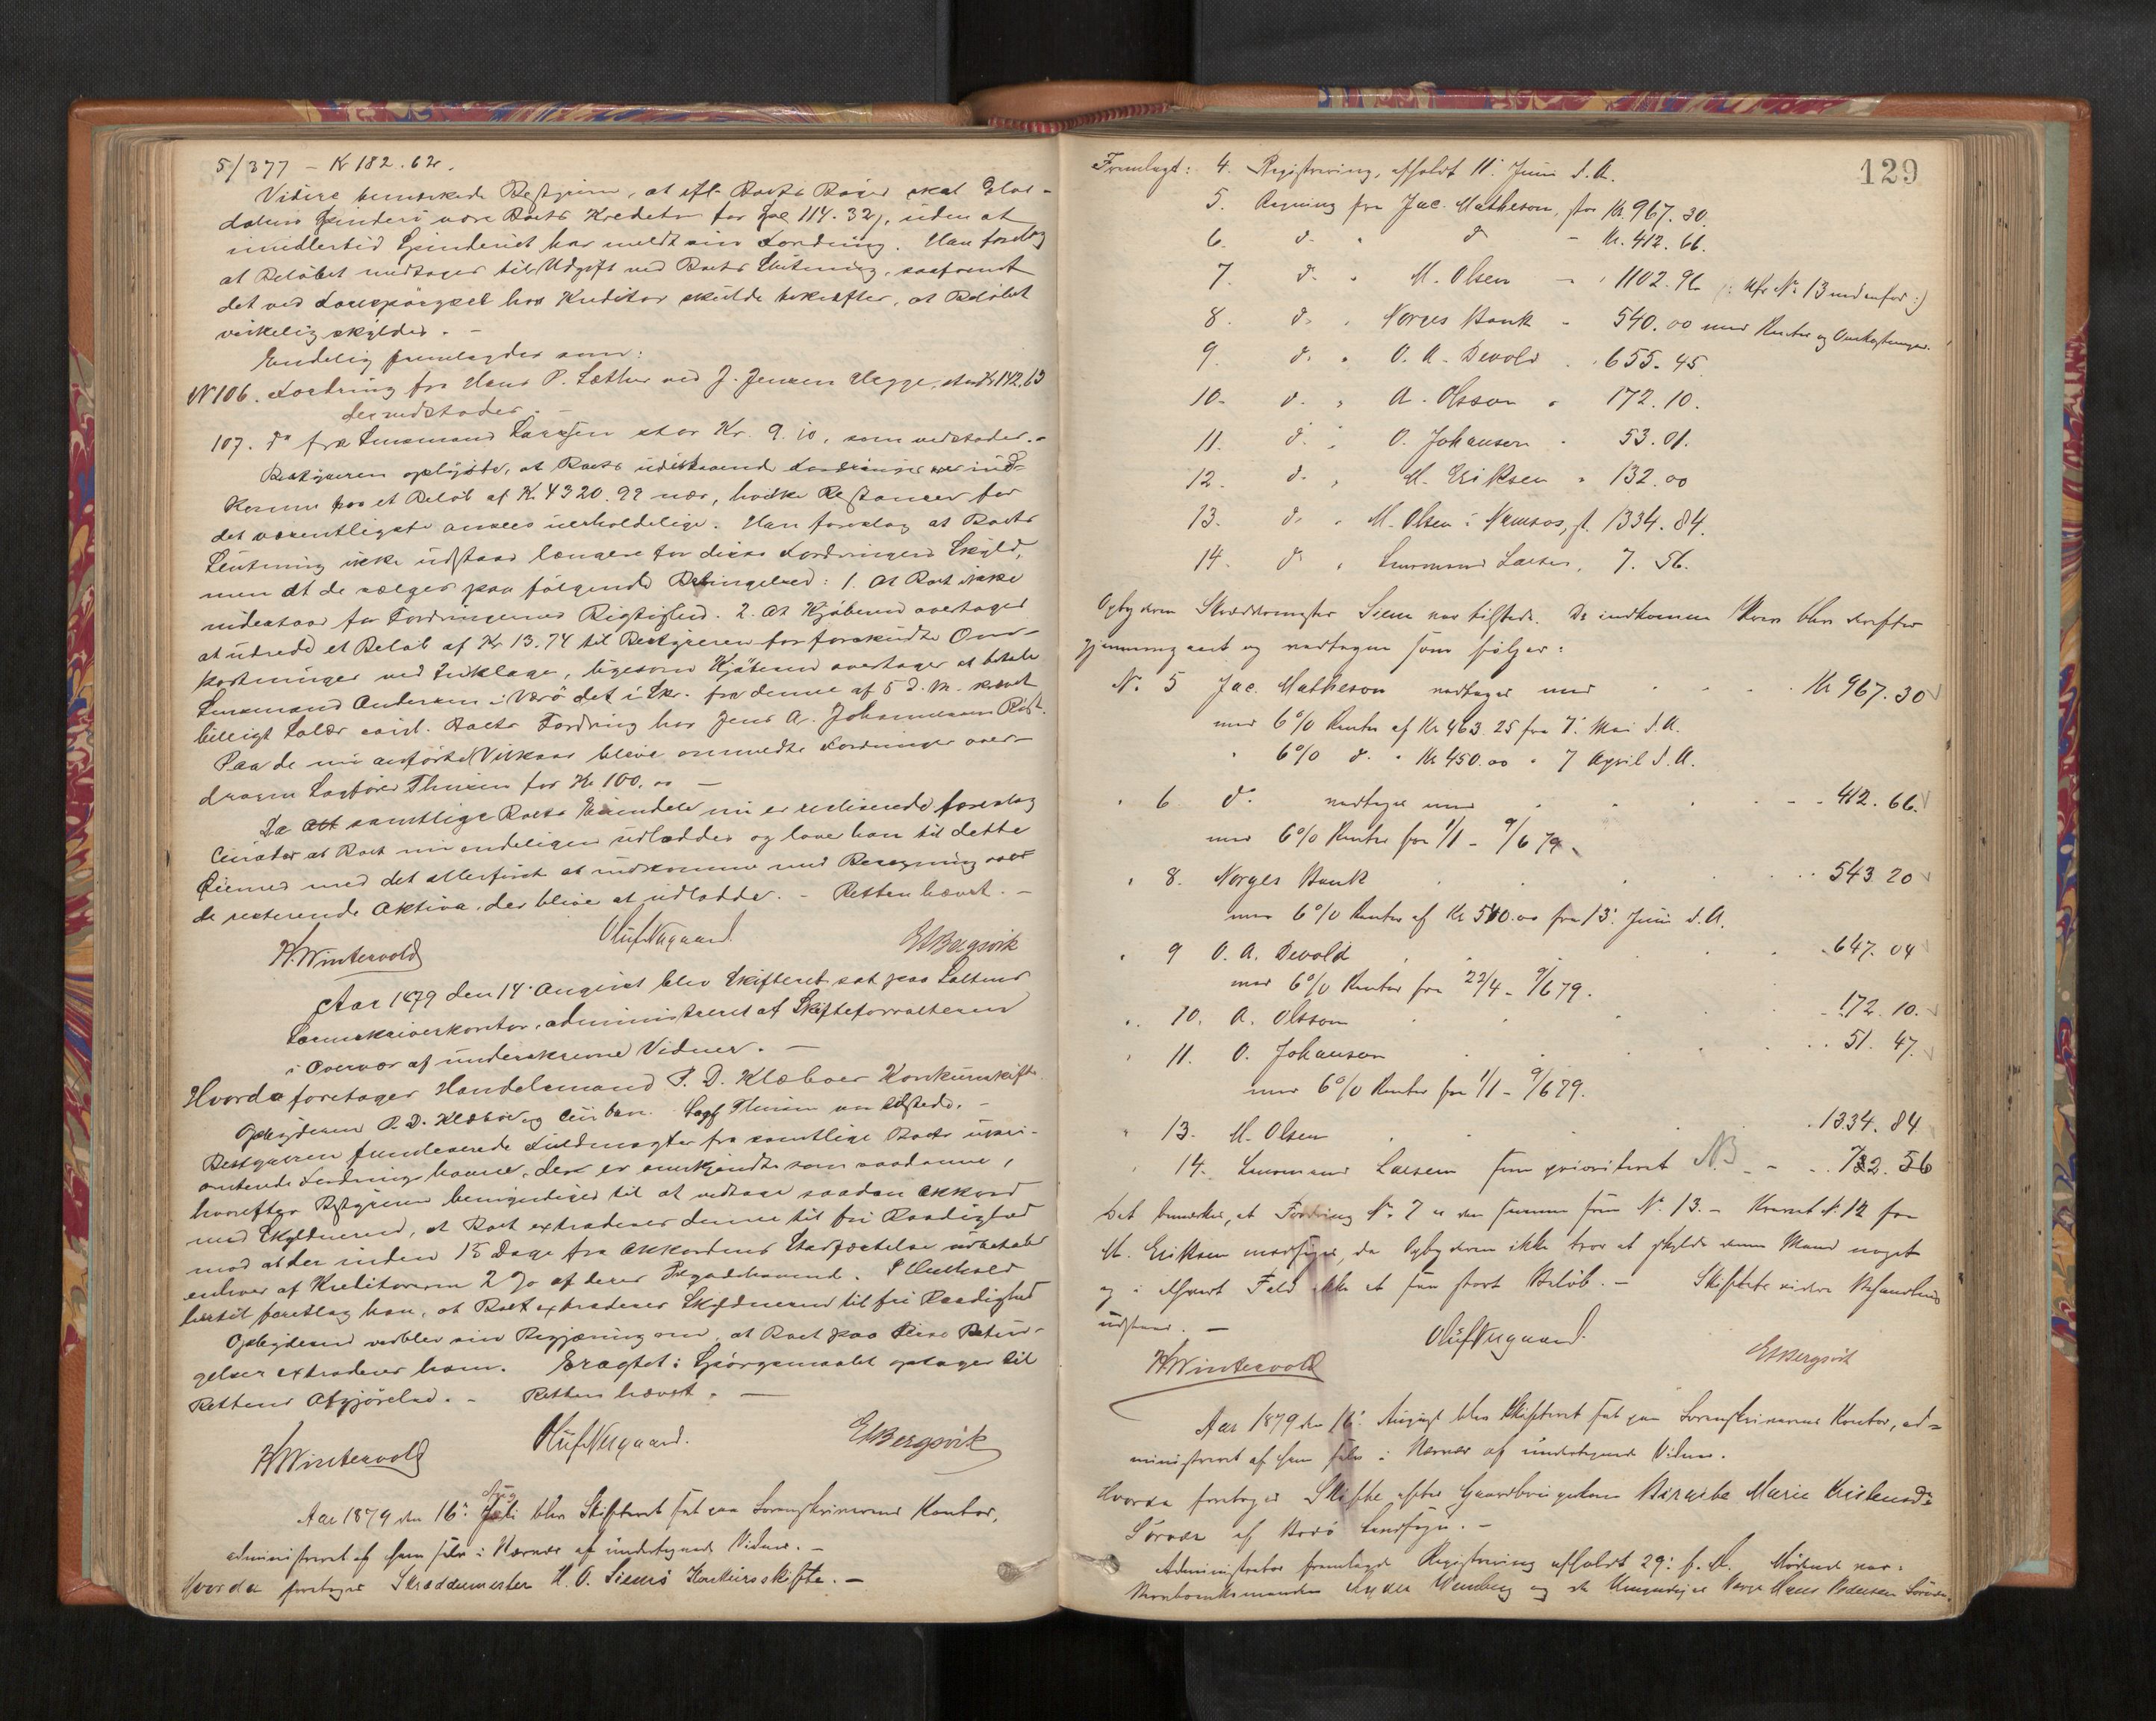 5/377 – Kr 182.62.
Videre bemærkede Bestyreren, at efter Boets Bøger skal
dalens Spinderi være Boets Kreditor for 114.32, uden at
imidlertid Spinderiet har meldt sin Fordring. Han foreslog
at Beløbet medtages til Udgift ved Boets Slutning, saafremt
det ved Forespørgsel hos Kreditor skulde bekræftes, at Beløbet
virkelig skyldes. –
Endelig fremlagdes som:
N 106. Fordring fra Hans P. Sæther ved J. Jensen Hegge, stor Kr 142.63
der vedstodes. –
107. do fra Lensmand Larssen stor Kr. 9.10, som vedstodes. –
Bestyreren oplyste, at Boets udestaaende Fordringer er ind-
komne paa et Beløb af Kr 4320.92 nær, hvilke Restancer for
det væsentligste ansees uerholdelige. Han foreslog at Boets
Slutning ikke udstaar længere for disse Fordringers Skyld,
men at de sælges paa følgende Betingelser: 1. At Boet ikke
indestaar for Fordringernes Rigtighed. 2. At Kjøberen overtager
at udrede et Beløb af Kr. 13.74 til Bestyreren for forskudte Om-
kostninger ved Indklage, ligesom Kjøberen overtager at betale
Lensmand Andersen i Værø det i Skr. fra denne af 5 d. M. krævet
billigt Salær Boets Fordring hos Jens A. Johannesen Røst.
Paa de nu anførte Vilkaar bleve ommeldte Fordringer over-
dragen Sagfører Thesen for Kr 100.00 –
Da att samtlige Boets Eiendele nu er realiserede foreslog
Curator at Boet nu endeligen udloddes og lover han til dette
Øiemed med det allerførste at indkomme med Beregning over
de resterende Aktiva, der blive at udlodde. – Retten hævet. –
H. Wintervold Oluf Nygaard E Bergsvik
Aar 1879 den 14. August blev Skifteret sat paa Saltens
Sorenskriverkontor, administreret af Skifteforvalteren
i Overvær af underskrevne Vidner. –
Hvorda foretoges Handelsmand P. D. Klæboes Konkursskifte.
Opbyderen P. D. Klæboe og Sagf Thesen var tilstede. –
Bestyreren fremleverede Fuldmagter fra samtlige Boets upri-
oriterede Fordringshavere, der er anerkjendte som saadanne,
hvorefter Bestyreren bemyndiges til at vedtage saadan Akkord
med Skyldneren, at Boet extraderes denne til fri Raadighed
mod at der inden 15 Dage fra Akkordens Stadfæstelse udbetales
enhver af Kreditorerne 2 % af deres Tilgodehavende. I Henhold
hertil foreslog han, at Boet extraderes Skyldneren til fri Raadighed
Opbyderen vedblev sin Begjæring om, at Boet paa disse Betin-
gelser extraderes ham. Eragtet: Spørgsmaalet optages til
Rettens Afgjørelse. – Retten hævet. –
H Wintervold Oluf Nygaard. E Bergsvik
Aar 1879 den 16: Juli Aug blev Skifteret sat paa Sorenskriverens Kontor,
administreret af ham selv i Nærvær af undertegnede Vidner. –
Hvorda foretoges Skræddermester H. O. Siems Konkursskifte. –
129
Fremlagt: 4. Registrering, afholdt 11: Juni d. A.
5. Regning fra Jac. Matheson, stor Kr. 967.30.
6. d. " d – Kr. 412.66.
7. d. " M. Olsen – " 1102.96 (: Kfr No 13 nedenfor :)
8. d. " Norges Bank – 540.00 med Renter og Omkostninger.
9. d. " O. A. Devold " 655.45.
10. d. " A. Olsson " 172.10.
11. d. " O. Johansen " 53.01.
12. d. " M. Eriksen " 132.00
13. d. " M. Olsen i Namsos, st. 1334.84.
14. d " Lensmand Larsen, 7.56.
Opbyderen Skræddermester Siem var tilstede. De indkomne Krav blev derefter
gjennemgaaet og vedtagne som følger:
No. 5 Jac. Matheson vedtages med Kr 967.30
med 6% Renter af Kr 463.25 fra 7: Mai d. A.
" 6% d. " Kr 450.00 " 7 April d. A.
" 6 do. vedtages med 412.66.
med 6% Renter fra 1/1 – 9/6 79.
" 8. Norges Bank 543.20
med 6% Renter af Kr 540.00 fra 13: Juni d. A.
" 9 O. A. Devold 647.04
med 6% Renter fra 22/4 – 9/6 79.
" 10. A. Olsson 172.10.
" 11. O. Johansen 51.47.
med 6% Renter fra 1/1 – 9/6 79.
" 13. M. Olsen 1334.84
" 14. Lensmand Larsen som prioriteret NB 56
Det bemærkes, at Fordring No. 7 er den samme som No. 13. – Kravet No. 12 fra
M. Eriksen modsiges, da Opbyderen ikke tror at skylde denne Mand noget
og i ethvert Fald ikke et saa stort Beløb. – Skiftets videre Behandling
udstaar. –
H Wintervold Oluf Nygaard. E Bergsvik
Aar 1879 den 16: August blev Skifteret sat paa Sorenskriverens Kontor, ad-
ministreret af ham selv i Nærvær af undertegnede Vidner.
Hvorda foretoges Skifte efter Gaardbrugerkone Birgitte Marie Kristensdr
Sørvær af Bodø Landsogn. –
Administrator fremlagde Registrering afholdt 29: f. M. Mødende var:
Hans Pedersen